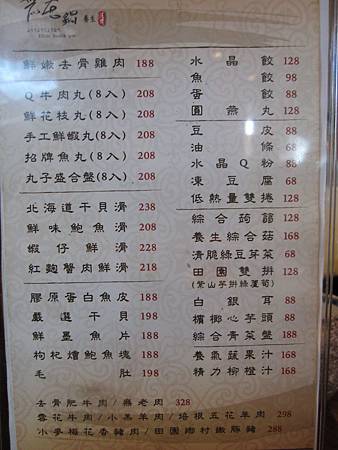 鍋
養生
鮮嫩去骨雞肉 188
Q牛肉丸(8入) 208
鮮花枝丸(8入) 208
手工鮮蝦丸(8入) 208
招牌魚丸(8入) 208
丸子盛合盤(8入) 208
北海道干貝滑 238
鮮味鮑魚滑 208
蝦仔鮮滑 228
紅麴蟹肉鮮滑 218
膠原蛋白魚皮 188
嚴選干貝 198
鮮墨魚片 188
枸杞燴鮑魚塊 188
毛肚 198
水晶餃 128
魚餃 98
蛋餃 88
圓燕丸 128
豆皮 88
油條 68
水晶Q粉 88
凍豆腐 68
低熱量雙捲 128
綜合蒟蒻 128
養生綜合菇 168
清脆綠豆芽菜 68
田園雙拼 128
(紫山芋拼綠蘆筍)
白銀耳 88
檳榔心芋頭 88
綜合青菜盤 188
養氣蔬果汁 168
精力柳橙汁 168
去骨肥牛肉/無老肉 328
雪花牛肉/小羔羊肉/培根五花羊肉 298
小麥梅花香豬肉/田園鄉村嫩豚豬 288